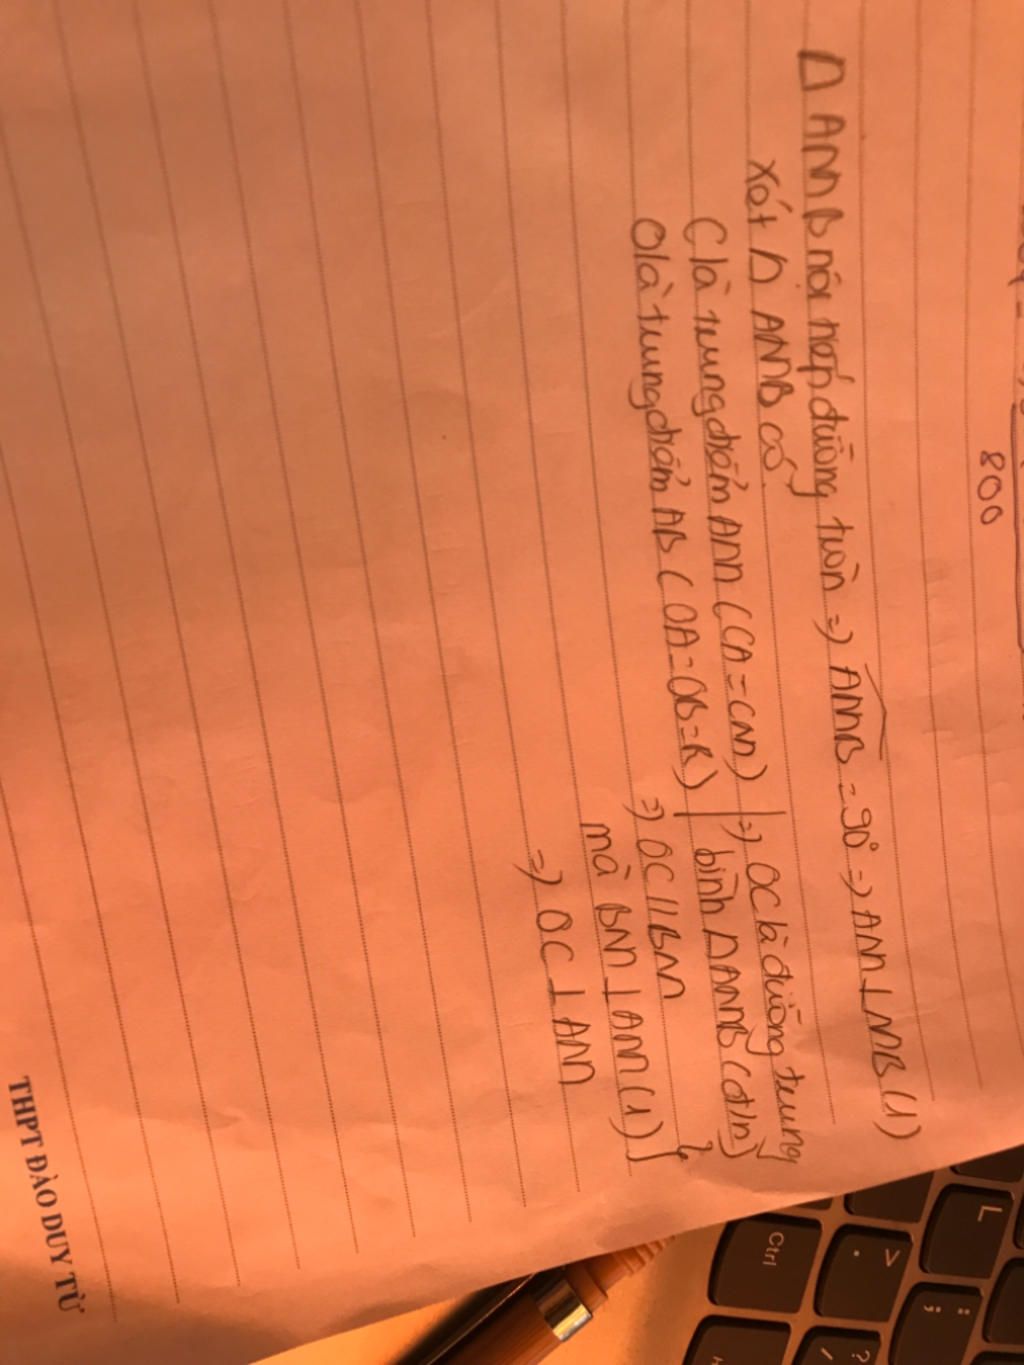 800
Δ AMB nội tiếp đường tròn => AMB = 90° => AM ⊥ MB (1)
Xét Δ AMB có
C là trung điểm AM (CA = CM) | => OC là đường trung
O là trung điểm AB (OA = OB = R) | bình ΔAMB (đ/n)
=> OC // BM
mà BM ⊥ AM (1)
=> OC ⊥ AM
THPT ĐÀO DUY TỪ
L
Ctrl
>
.
:
;
?
/